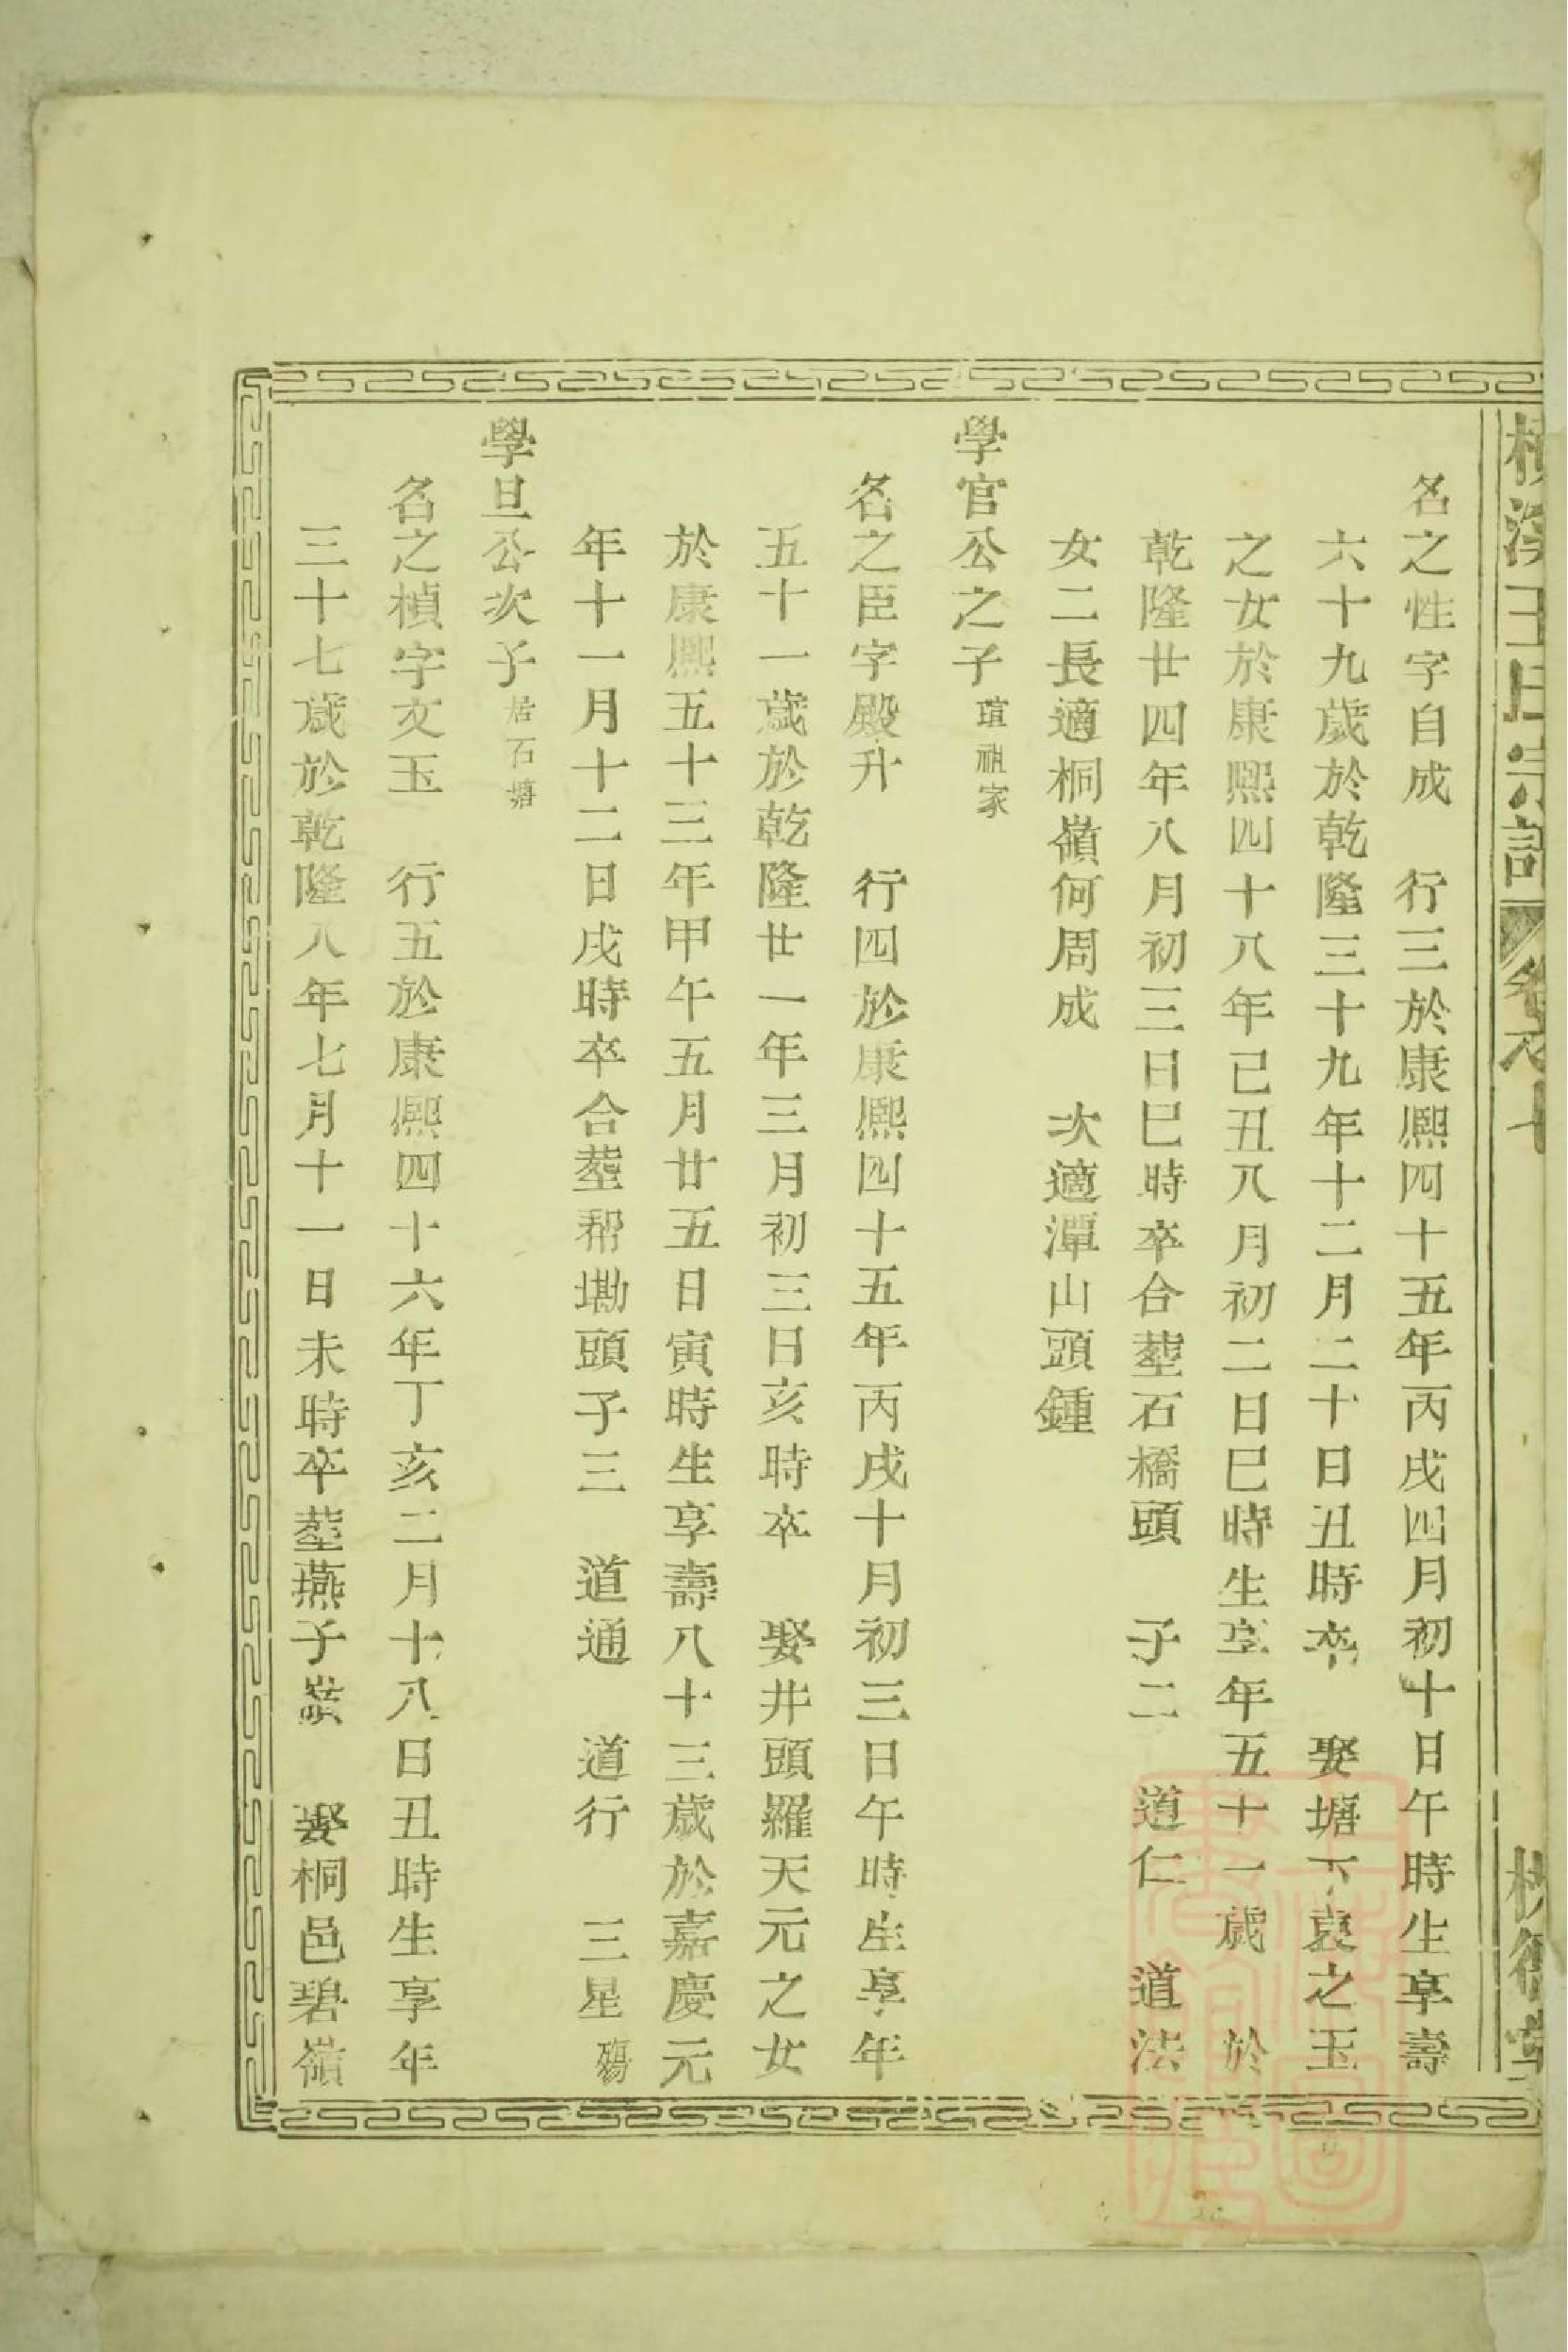 王氏宗譜 卷之十
名之性字自成 行三於康熙四十五年丙戌四月初十日午時生享壽
六十九歲於乾隆三十九年十二月二十日丑時卒 娶塘下袁之玉
之女於康熙四十八年己丑八月初二日巳時生享年五十一歲 於
乾隆廿四年八月初三日巳時卒合塟石橋頭 子二 道仁 道法
女二長適桐嶺何周成 次適潭山頭鍾
學官公之子 瑄祖家
名之臣字殿升 行四於康熙四十五年丙戌十月初三日午時生享年
五十一歲於乾隆廿一年三月初三日亥時卒 娶井頭羅天元之女
於康熙五十三年甲午五月廿五日寅時生享壽八十三歲於嘉慶元
年十一月十二日戌時卒合塟帮墈頭子三 道通 道行 三星 殤
學旦公次子 居石塘
名之楨字文玉 行五於康熙四十六年丁亥二月十八日丑時生享年
三十七歲於乾隆八年七月十一日未時卒塟燕子嶺 娶桐邑碧嶺